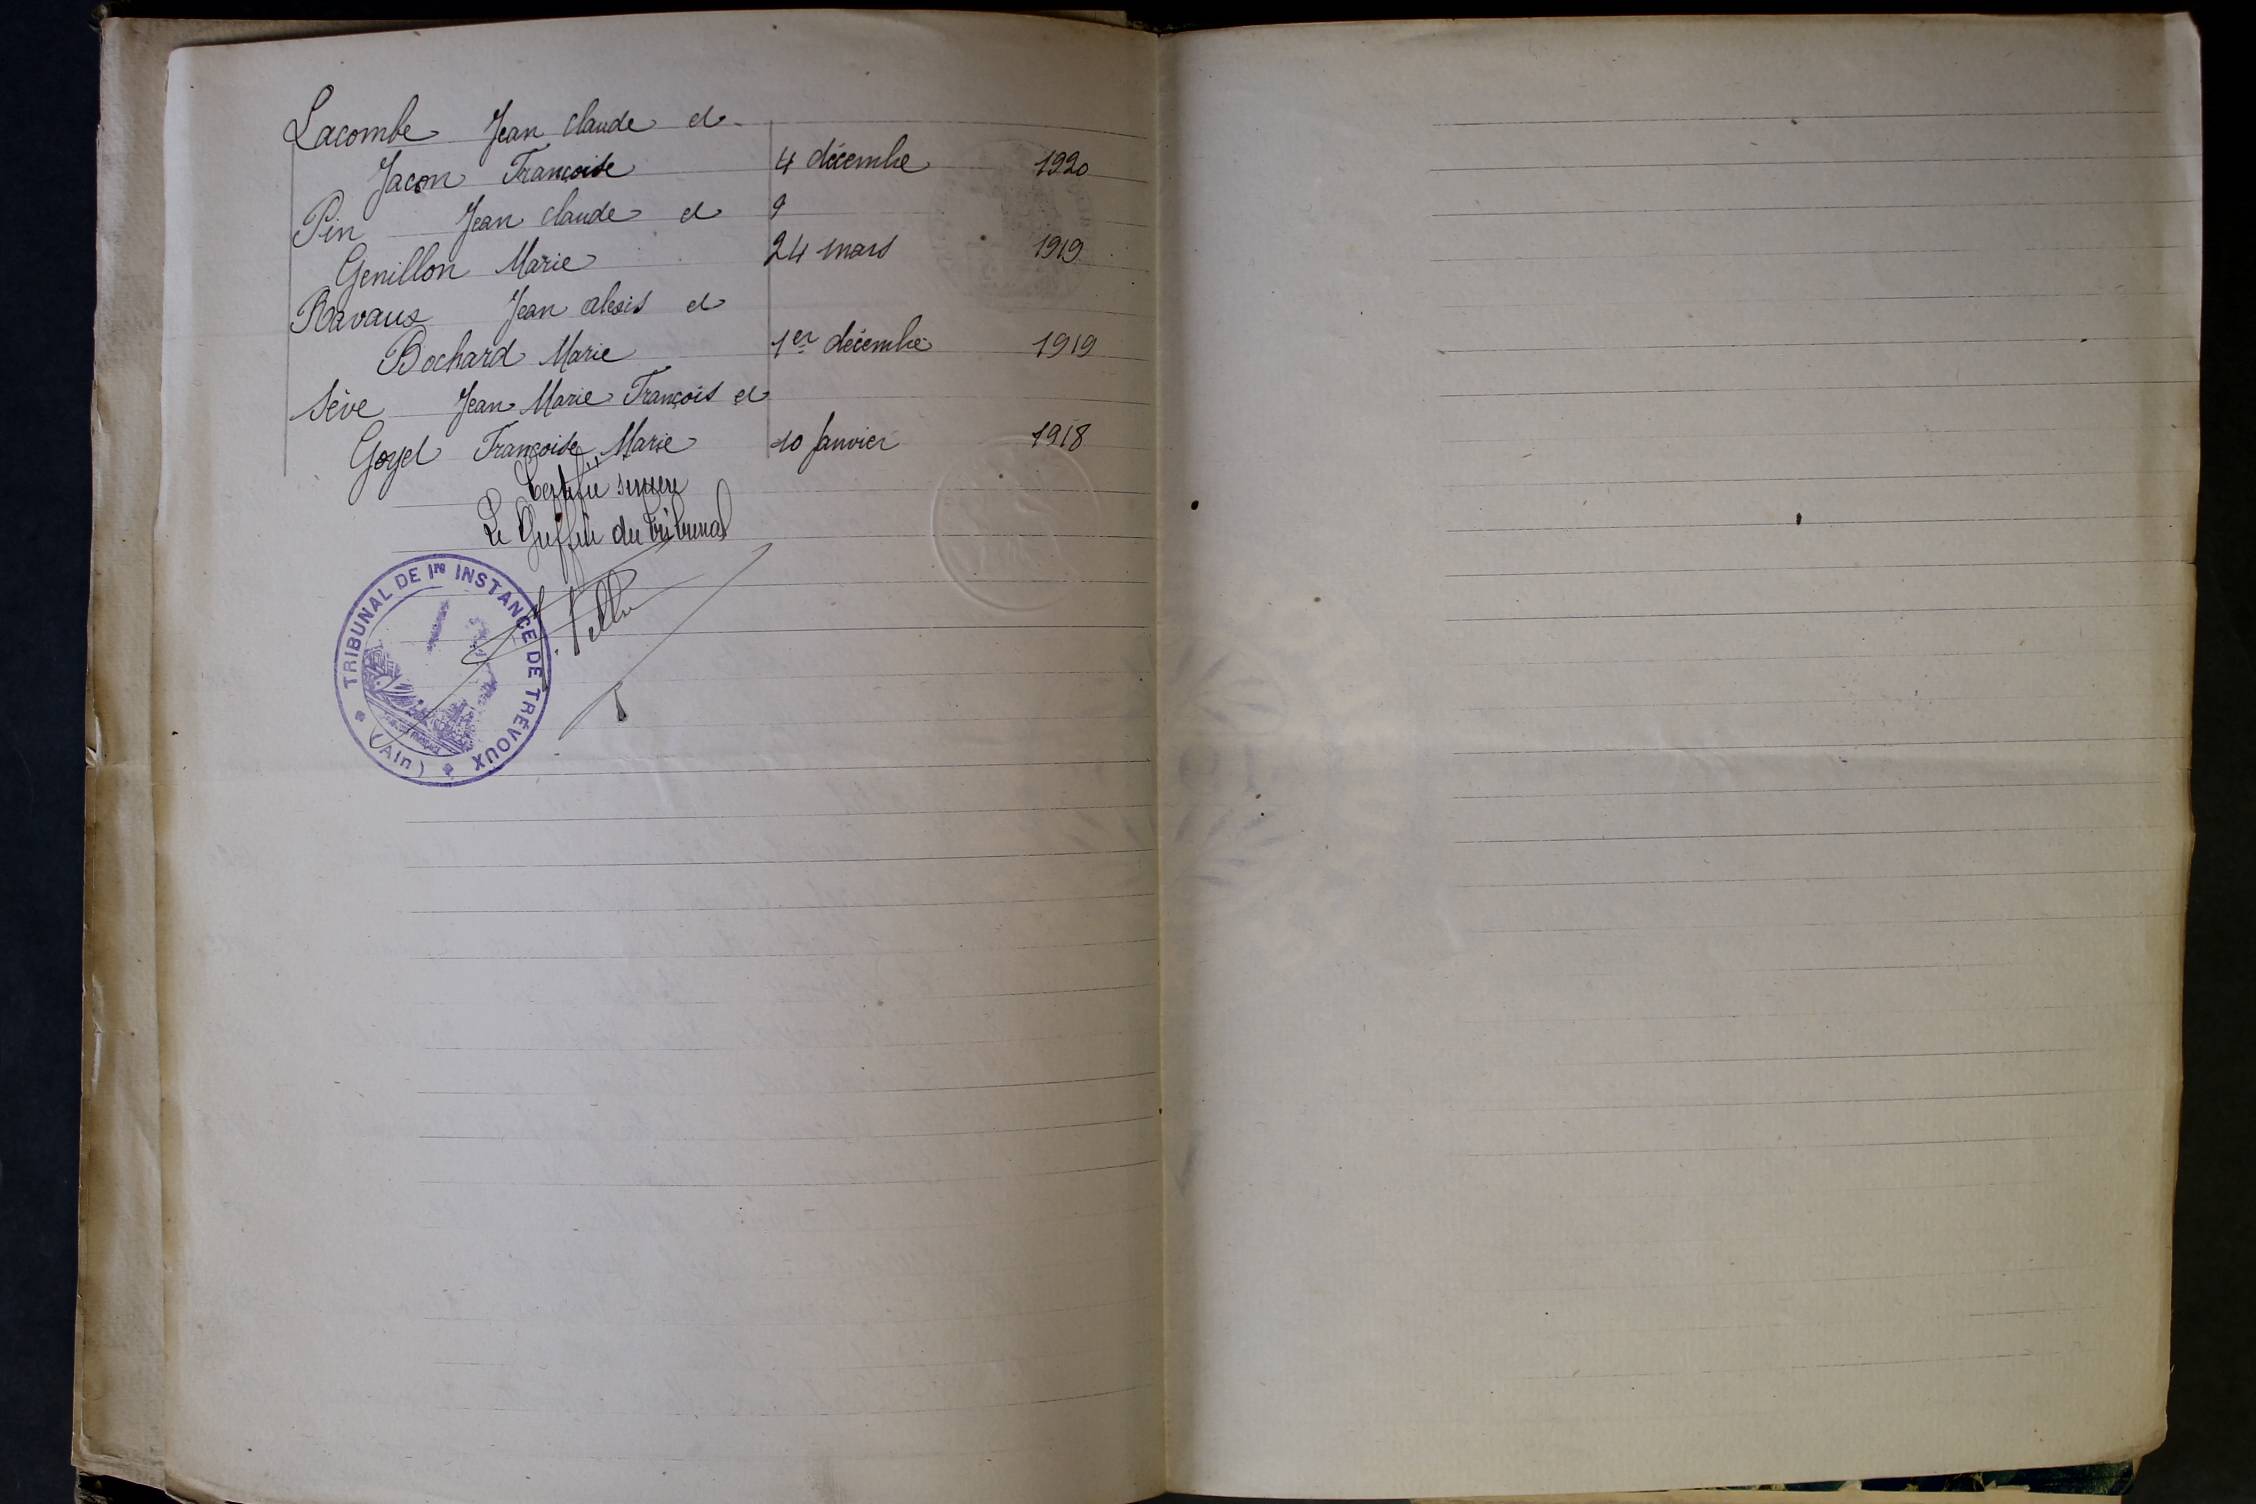 Lacombe Jean Claude et
Jacon Françoise 4 décembre 1920
Pin Jean Claude et 9
Genillon Marie 24 mars 1919
Ravaux Jean Alexis et
Bochard Marie 1er décembre 1919
Sève Jean Marie François et
Goyet Françoise Marie 10 Janvier 1918
Certifié sincère
Le Greffier du Tribunal
TRIBUNAL DE 1re INSTANCE DE TRÉVOUX
(Ain)